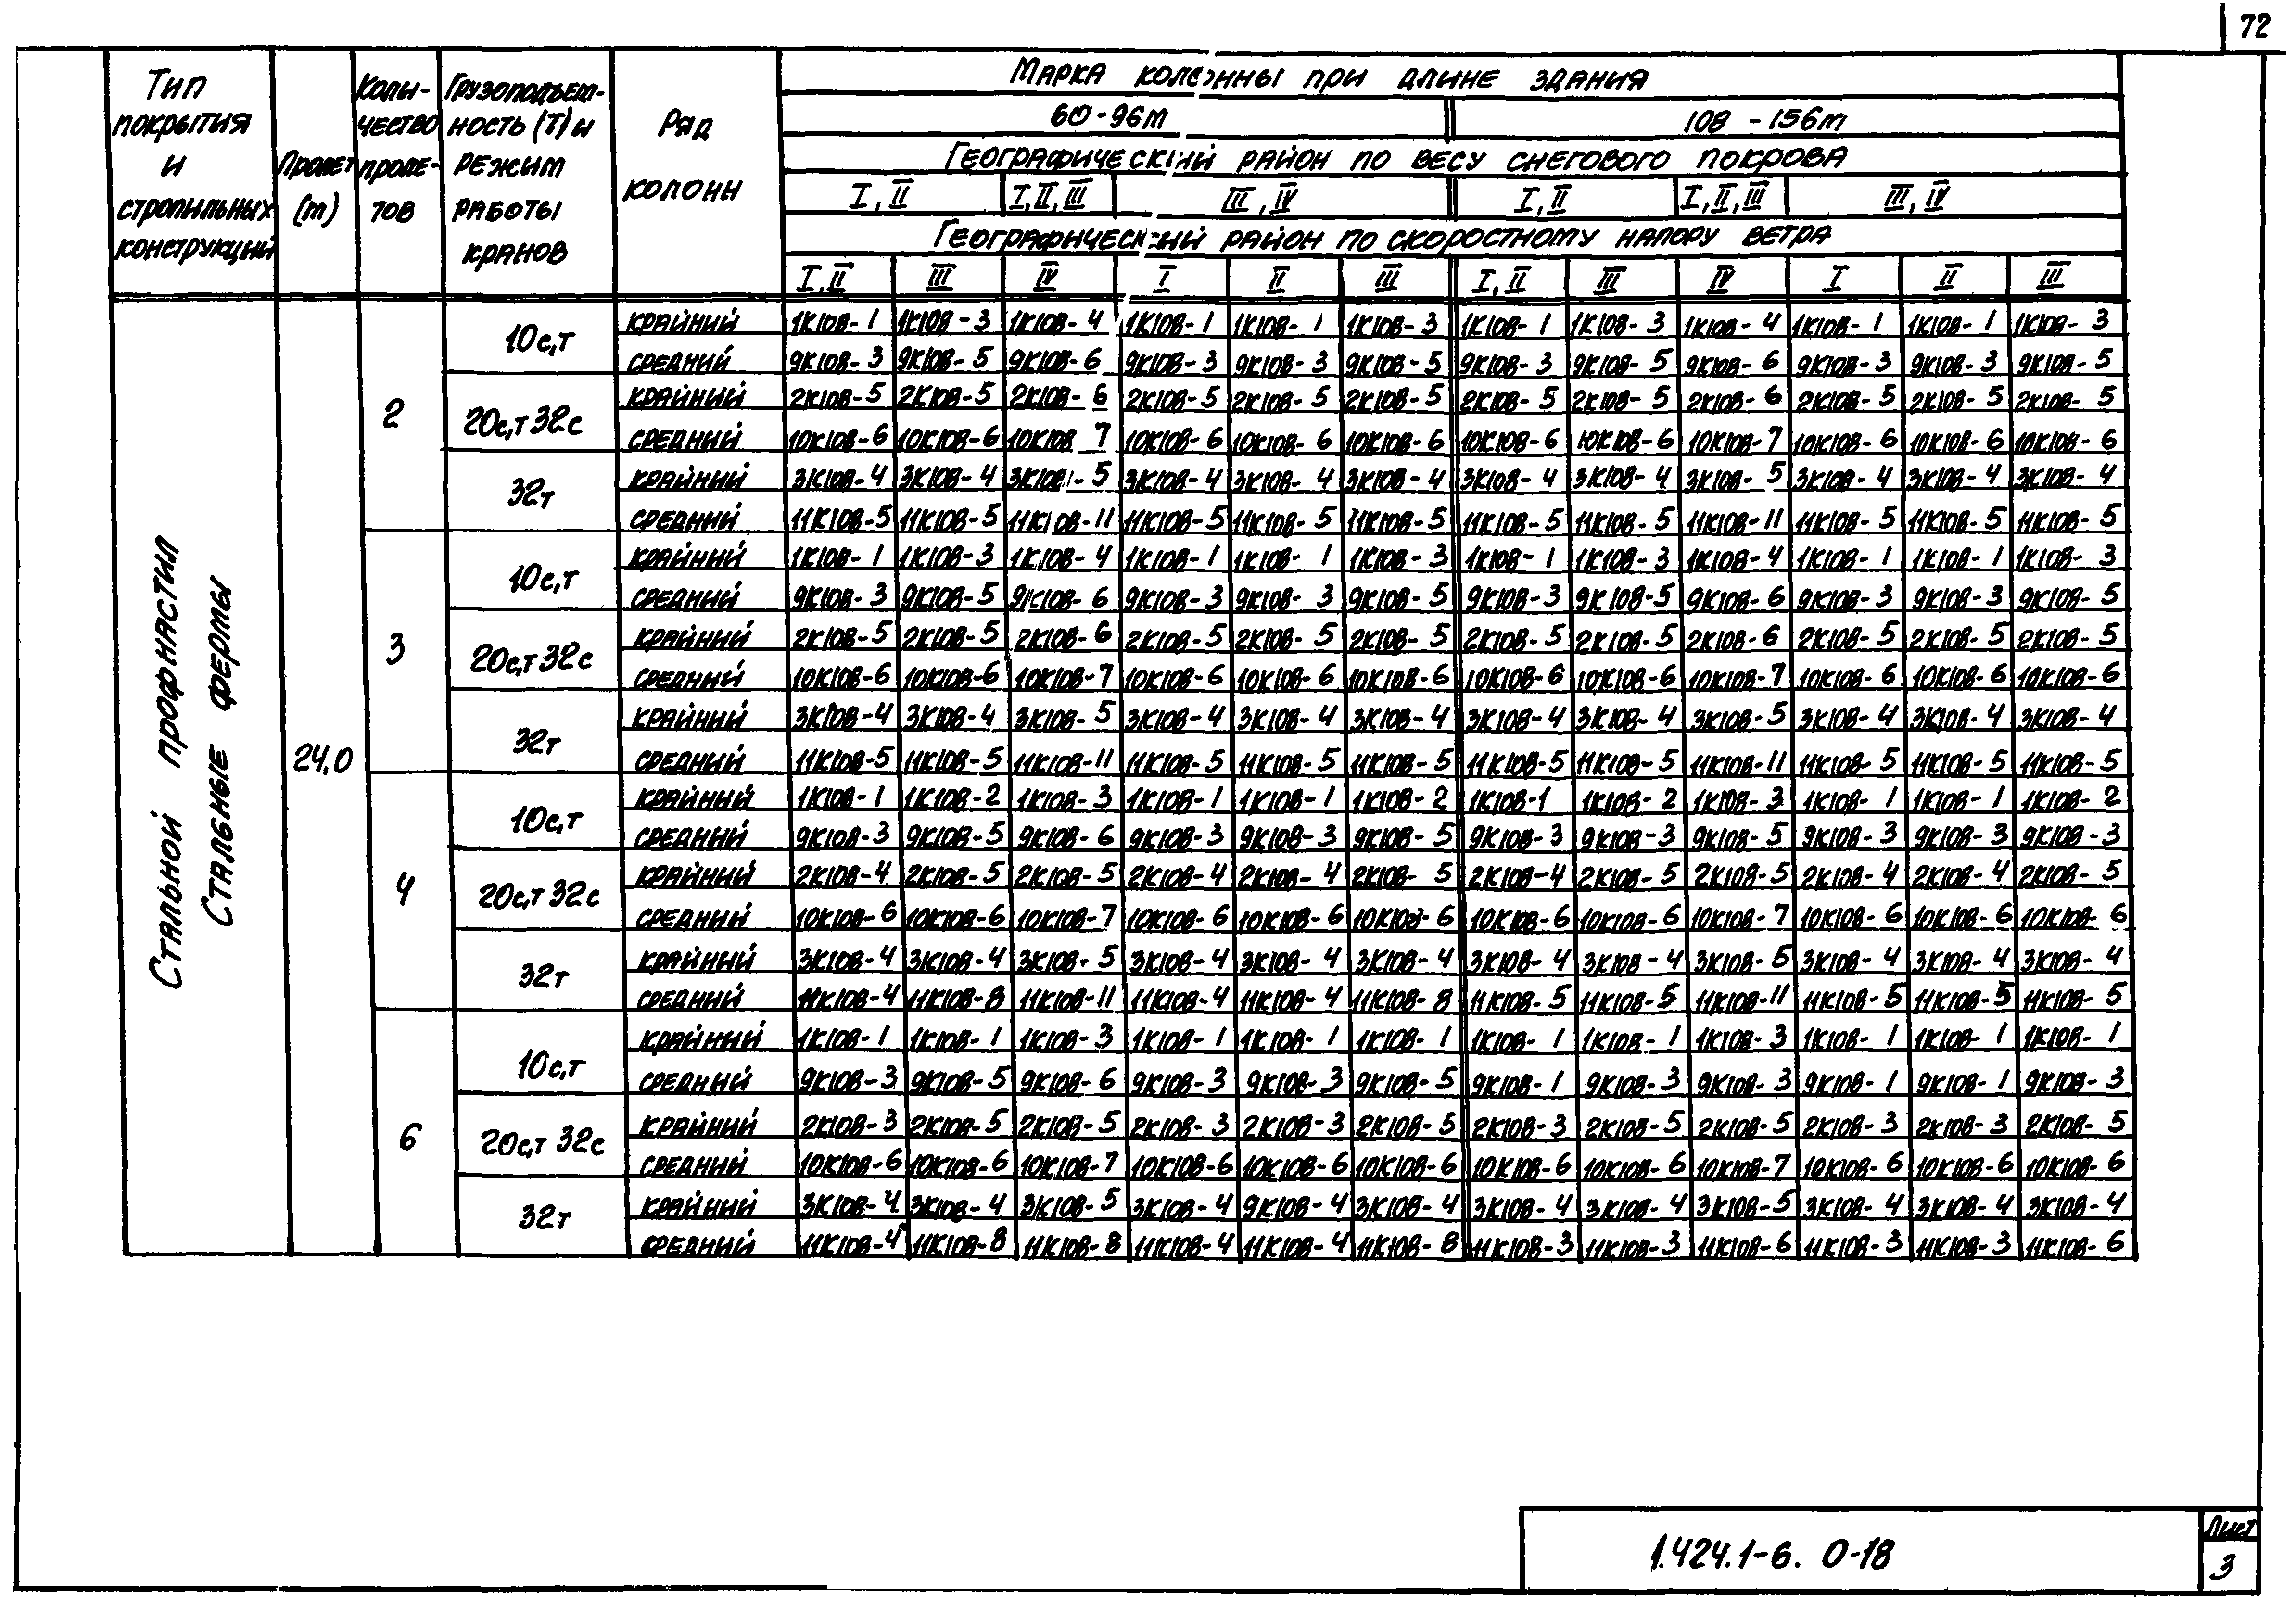 72
Тип покрытия и стропильных конструкций
Пролет (м)
Коли-чество проле-тов
Грузоподъем-ность (т) и режим работы кранов
Ряд колонн
Марка колонны при длине здания
60-96м 108 -156м
Географический район по весу снегового покрова
I, II I, II, III III, IV I, II I, II, III III, IV
Географический район по скоростному напору ветра
I, II III IV I II III I, II III IV I II III
Стальной профнастил
Стальные фермы
24,0
2
10с,т
крайний 1К108-1 1К108-3 1К108-4 1К108-1 1К108-1 1К108-3 1К108-1 1К108-3 1К108-4 1К108-1 1К108-1 1К108-3
средний 9К108-3 9К108-5 9К108-6 9К108-3 9К108-3 9К108-5 9К108-3 9К108-5 9К108-6 9К108-3 9К108-3 9К108-5
20с,т 32с
крайний 2К108-5 2К108-5 2К108-6 2К108-5 2К108-5 2К108-5 2К108-5 2К108-5 2К108-6 2К108-5 2К108-5 2К108-5
средний 10К108-6 10К108-6 10К108 7 10К108-6 10К108-6 10К108-6 10К108-6 10К108-6 10К108-7 10К108-6 10К108-6 10К108-6
32т
крайний 3К108-4 3К108-4 3К108-5 3К108-4 3К108-4 3К108-4 3К108-4 3К108-4 3К108-5 3К108-4 3К108-4 3К108-4
средний 11К108-5 11К108-5 11К108-11 11К108-5 11К108-5 11К108-5 11К108-5 11К108-5 11К108-11 11К108-5 11К108-5 11К108-5
3
10с,т
крайний 1К108-1 1К108-3 1К108-4 1К108-1 1К108-1 1К108-3 1К108-1 1К108-3 1К108-4 1К108-1 1К108-1 1К108-3
средний 9К108-3 9К108-5 9К108-6 9К108-3 9К108-3 9К108-5 9К108-3 9К108-5 9К108-6 9К108-3 9К108-3 9К108-5
20с,т 32с
крайний 2К108-5 2К108-5 2К108-6 2К108-5 2К108-5 2К108-5 2К108-5 2К108-5 2К108-6 2К108-5 2К108-5 2К108-5
средний 10К108-6 10К108-6 10К108-7 10К108-6 10К108-6 10К108-6 10К108-6 10К108-6 10К108-7 10К108-6 10К108-6 10К108-6
32т
крайний 3К108-4 3К108-4 3К108-5 3К108-4 3К108-4 3К108-4 3К108-4 3К108-4 3К108-5 3К108-4 3К108-4 3К108-4
средний 11К108-5 11К108-5 11К108-11 11К108-5 11К108-5 11К108-5 11К108-5 11К108-5 11К108-11 11К108-5 11К108-5 11К108-5
4
10с,т
крайний 1К108-1 1К108-2 1К108-3 1К108-1 1К108-1 1К108-2 1К108-1 1К108-2 1К108-3 1К108-1 1К108-1 1К108-2
средний 9К108-3 9К108-5 9К108-6 9К108-3 9К108-3 9К108-5 9К108-3 9К108-3 9К108-5 9К108-3 9К108-3 9К108-3
20с,т 32с
крайний 2К108-4 2К108-5 2К108-5 2К108-4 2К108-4 2К108-5 2К108-4 2К108-5 2К108-5 2К108-4 2К108-4 2К108-5
средний 10К108-6 10К108-6 10К108-7 10К108-6 10К108-6 10К108-6 10К108-6 10К108-6 10К108-7 10К108-6 10К108-6 10К108-6
32т
крайний 3К108-4 3К108-4 3К108-5 3К108-4 3К108-4 3К108-4 3К108-4 3К108-4 3К108-5 3К108-4 3К108-4 3К108-4
средний 11К108-4 11К108-8 11К108-11 11К108-4 11К108-4 11К108-8 11К108-5 11К108-5 11К108-11 11К108-5 11К108-5 11К108-5
6
10с,т
крайний 1К108-1 1К108-1 1К108-3 1К108-1 1К108-1 1К108-1 1К108-1 1К108-1 1К108-3 1К108-1 1К108-1 1К108-1
средний 9К108-3 9К108-5 9К108-6 9К108-3 9К108-3 9К108-5 9К108-1 9К108-3 9К108-3 9К108-1 9К108-1 9К108-3
20с,т 32с
крайний 2К108-3 2К108-5 2К108-5 2К108-3 2К108-3 2К108-5 2К108-3 2К108-5 2К108-5 2К108-3 2К108-3 2К108-5
средний 10К108-6 10К108-6 10К108-7 10К108-6 10К108-6 10К108-6 10К108-6 10К108-6 10К108-7 10К108-6 10К108-6 10К108-6
32т
крайний 3К108-4 3К108-4 3К108-5 3К108-4 9К108-4 3К108-4 3К108-4 3К108-4 3К108-5 3К108-4 3К108-4 3К108-4
средний 11К108-4 11К108-8 11К108-8 11К108-4 11К108-4 11К108-8 11К108-3 11К108-3 11К108-6 11К108-3 11К108-3 11К108-6
1.424.1-6. 0-18
Лист
3